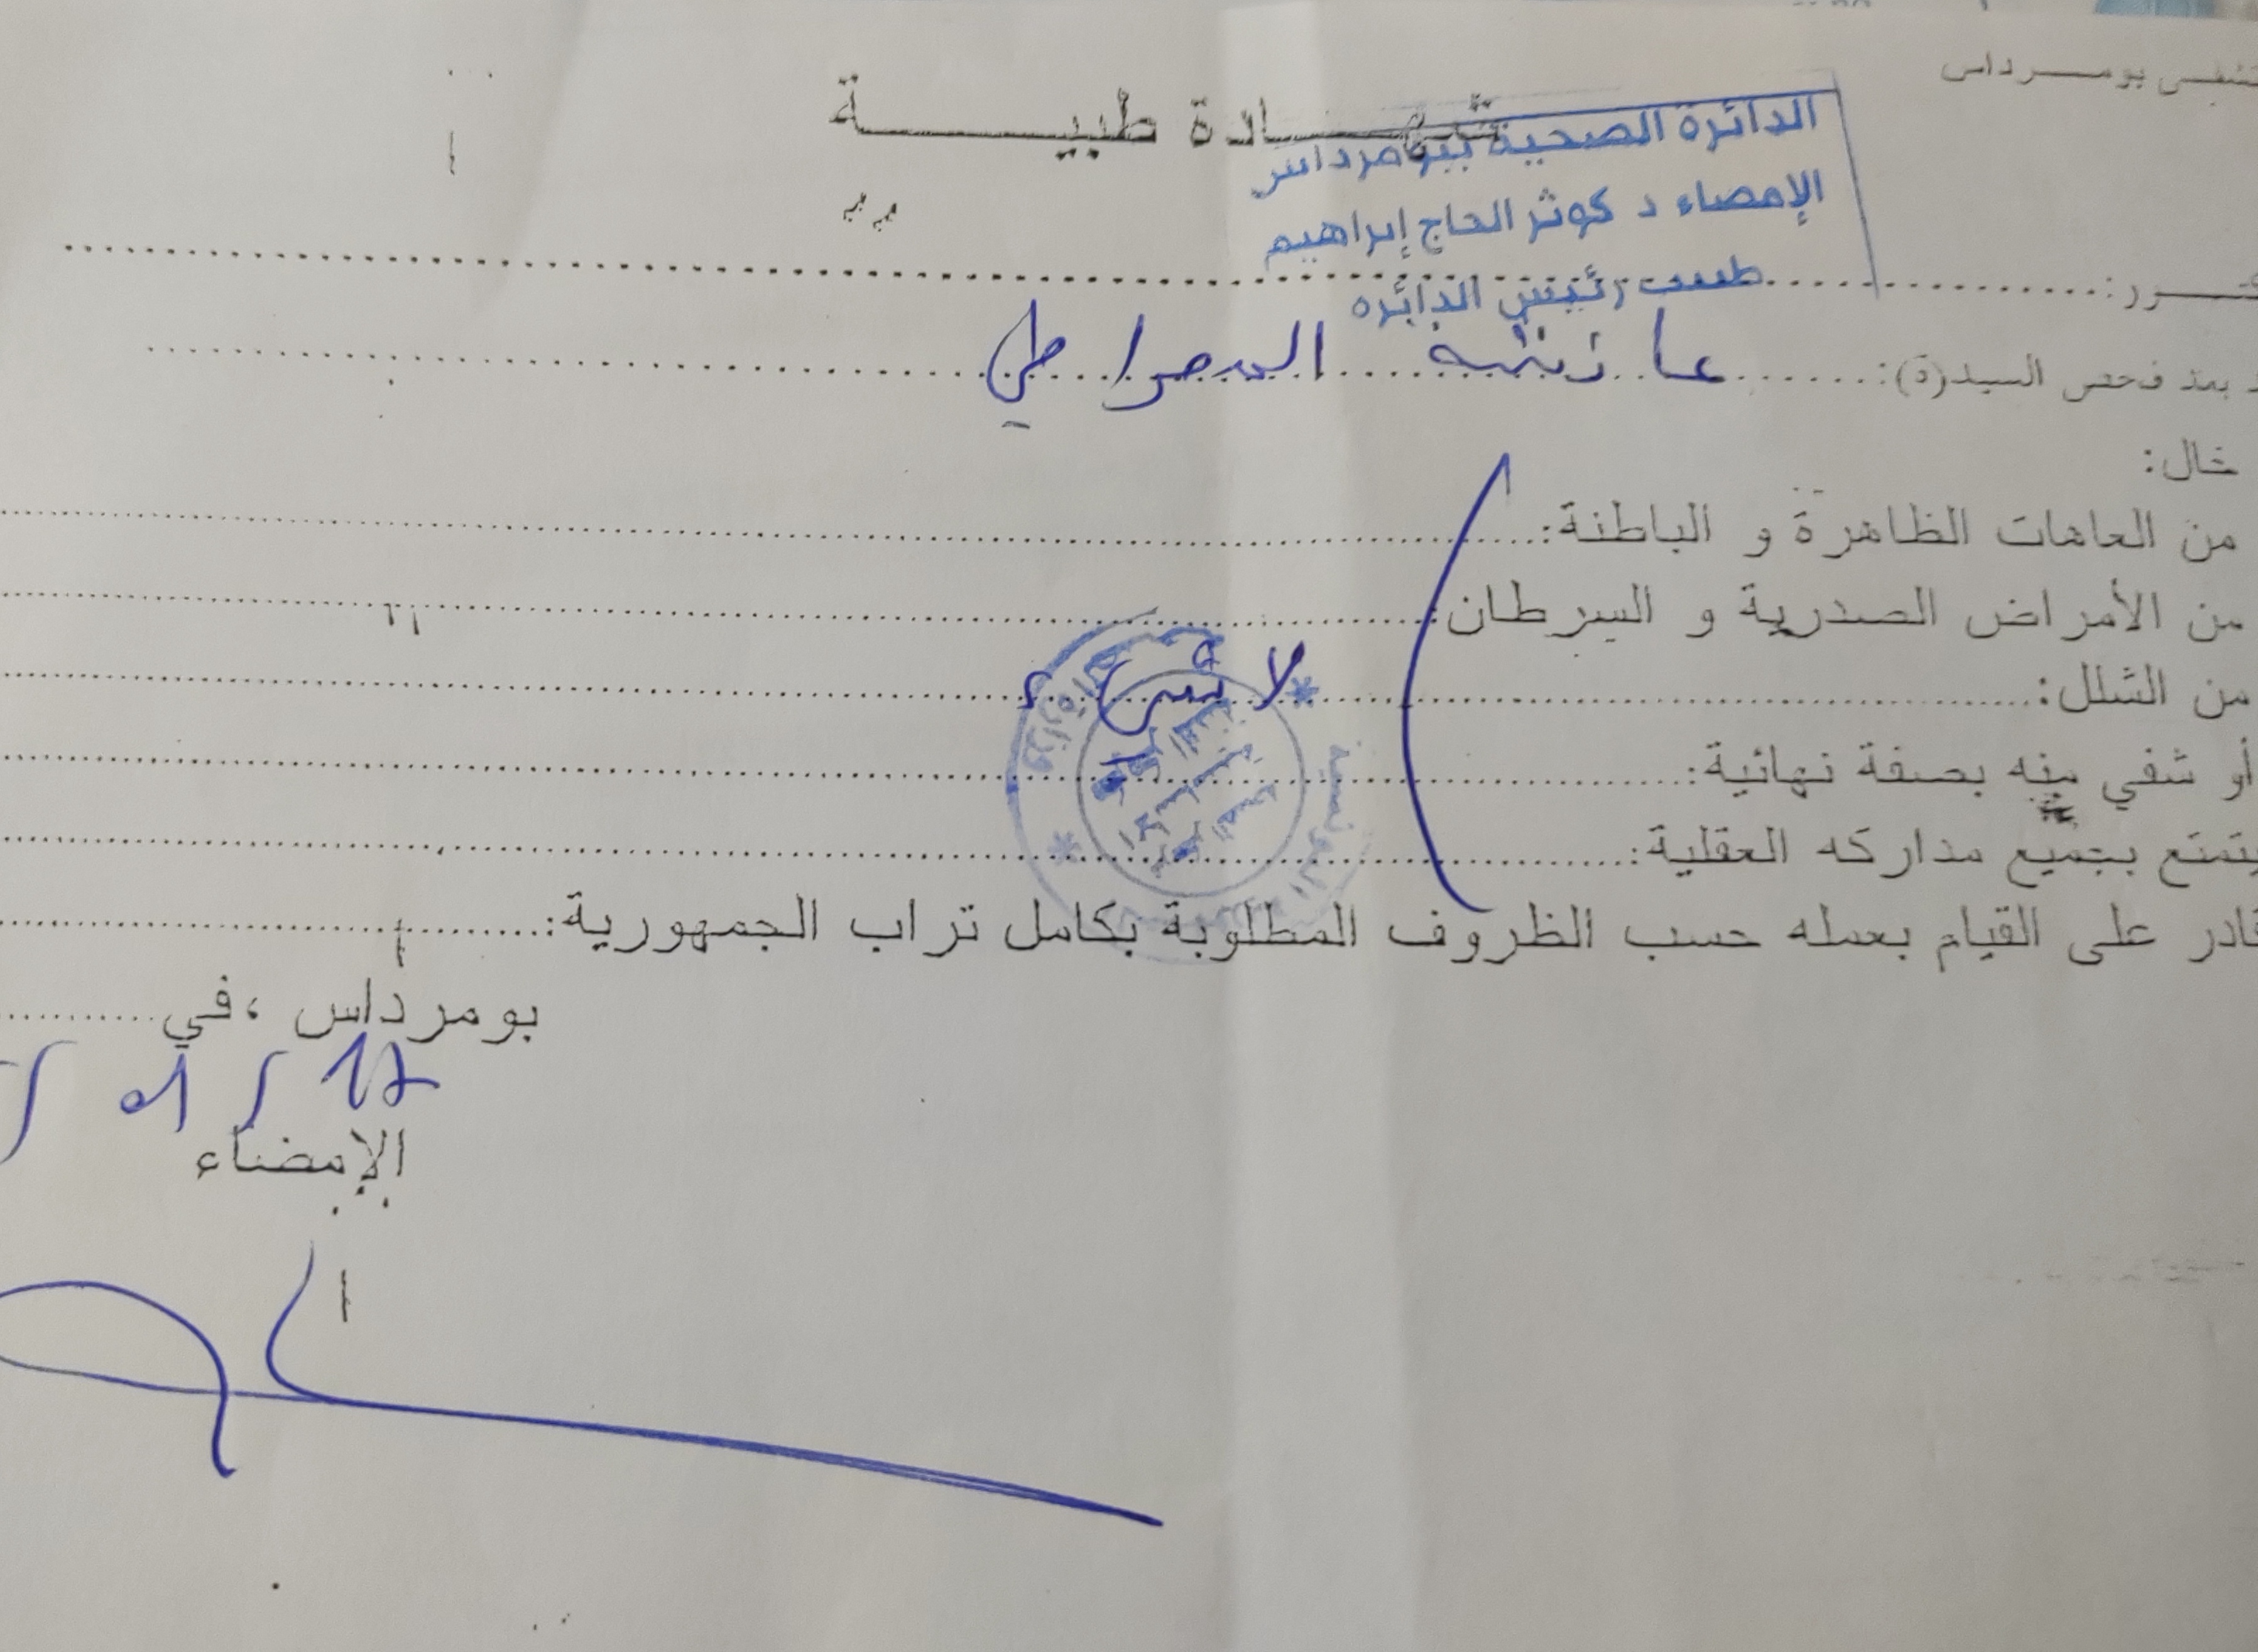 بومرداس
شهادة طبية
الدائرة الصحية ببومرداس
الإمضاء د كوثر الحاج إبراهيم
طبيب رئيس الدائرة
بعد فحص السيد(ة): عائشة
خال:
من العاهات الظاهرة و الباطنة:
من الأمراض الصدرية و السرطان:
لا شيء
من الشلل:
أو شفي منه بصفة نهائية:
يتمتع بجميع مداركه العقلية:
قادر على القيام بعمله حسب الظروف المطلوبة بكامل تراب الجمهورية:
بومرداس ،في
17 / 01 /
الإمضاء